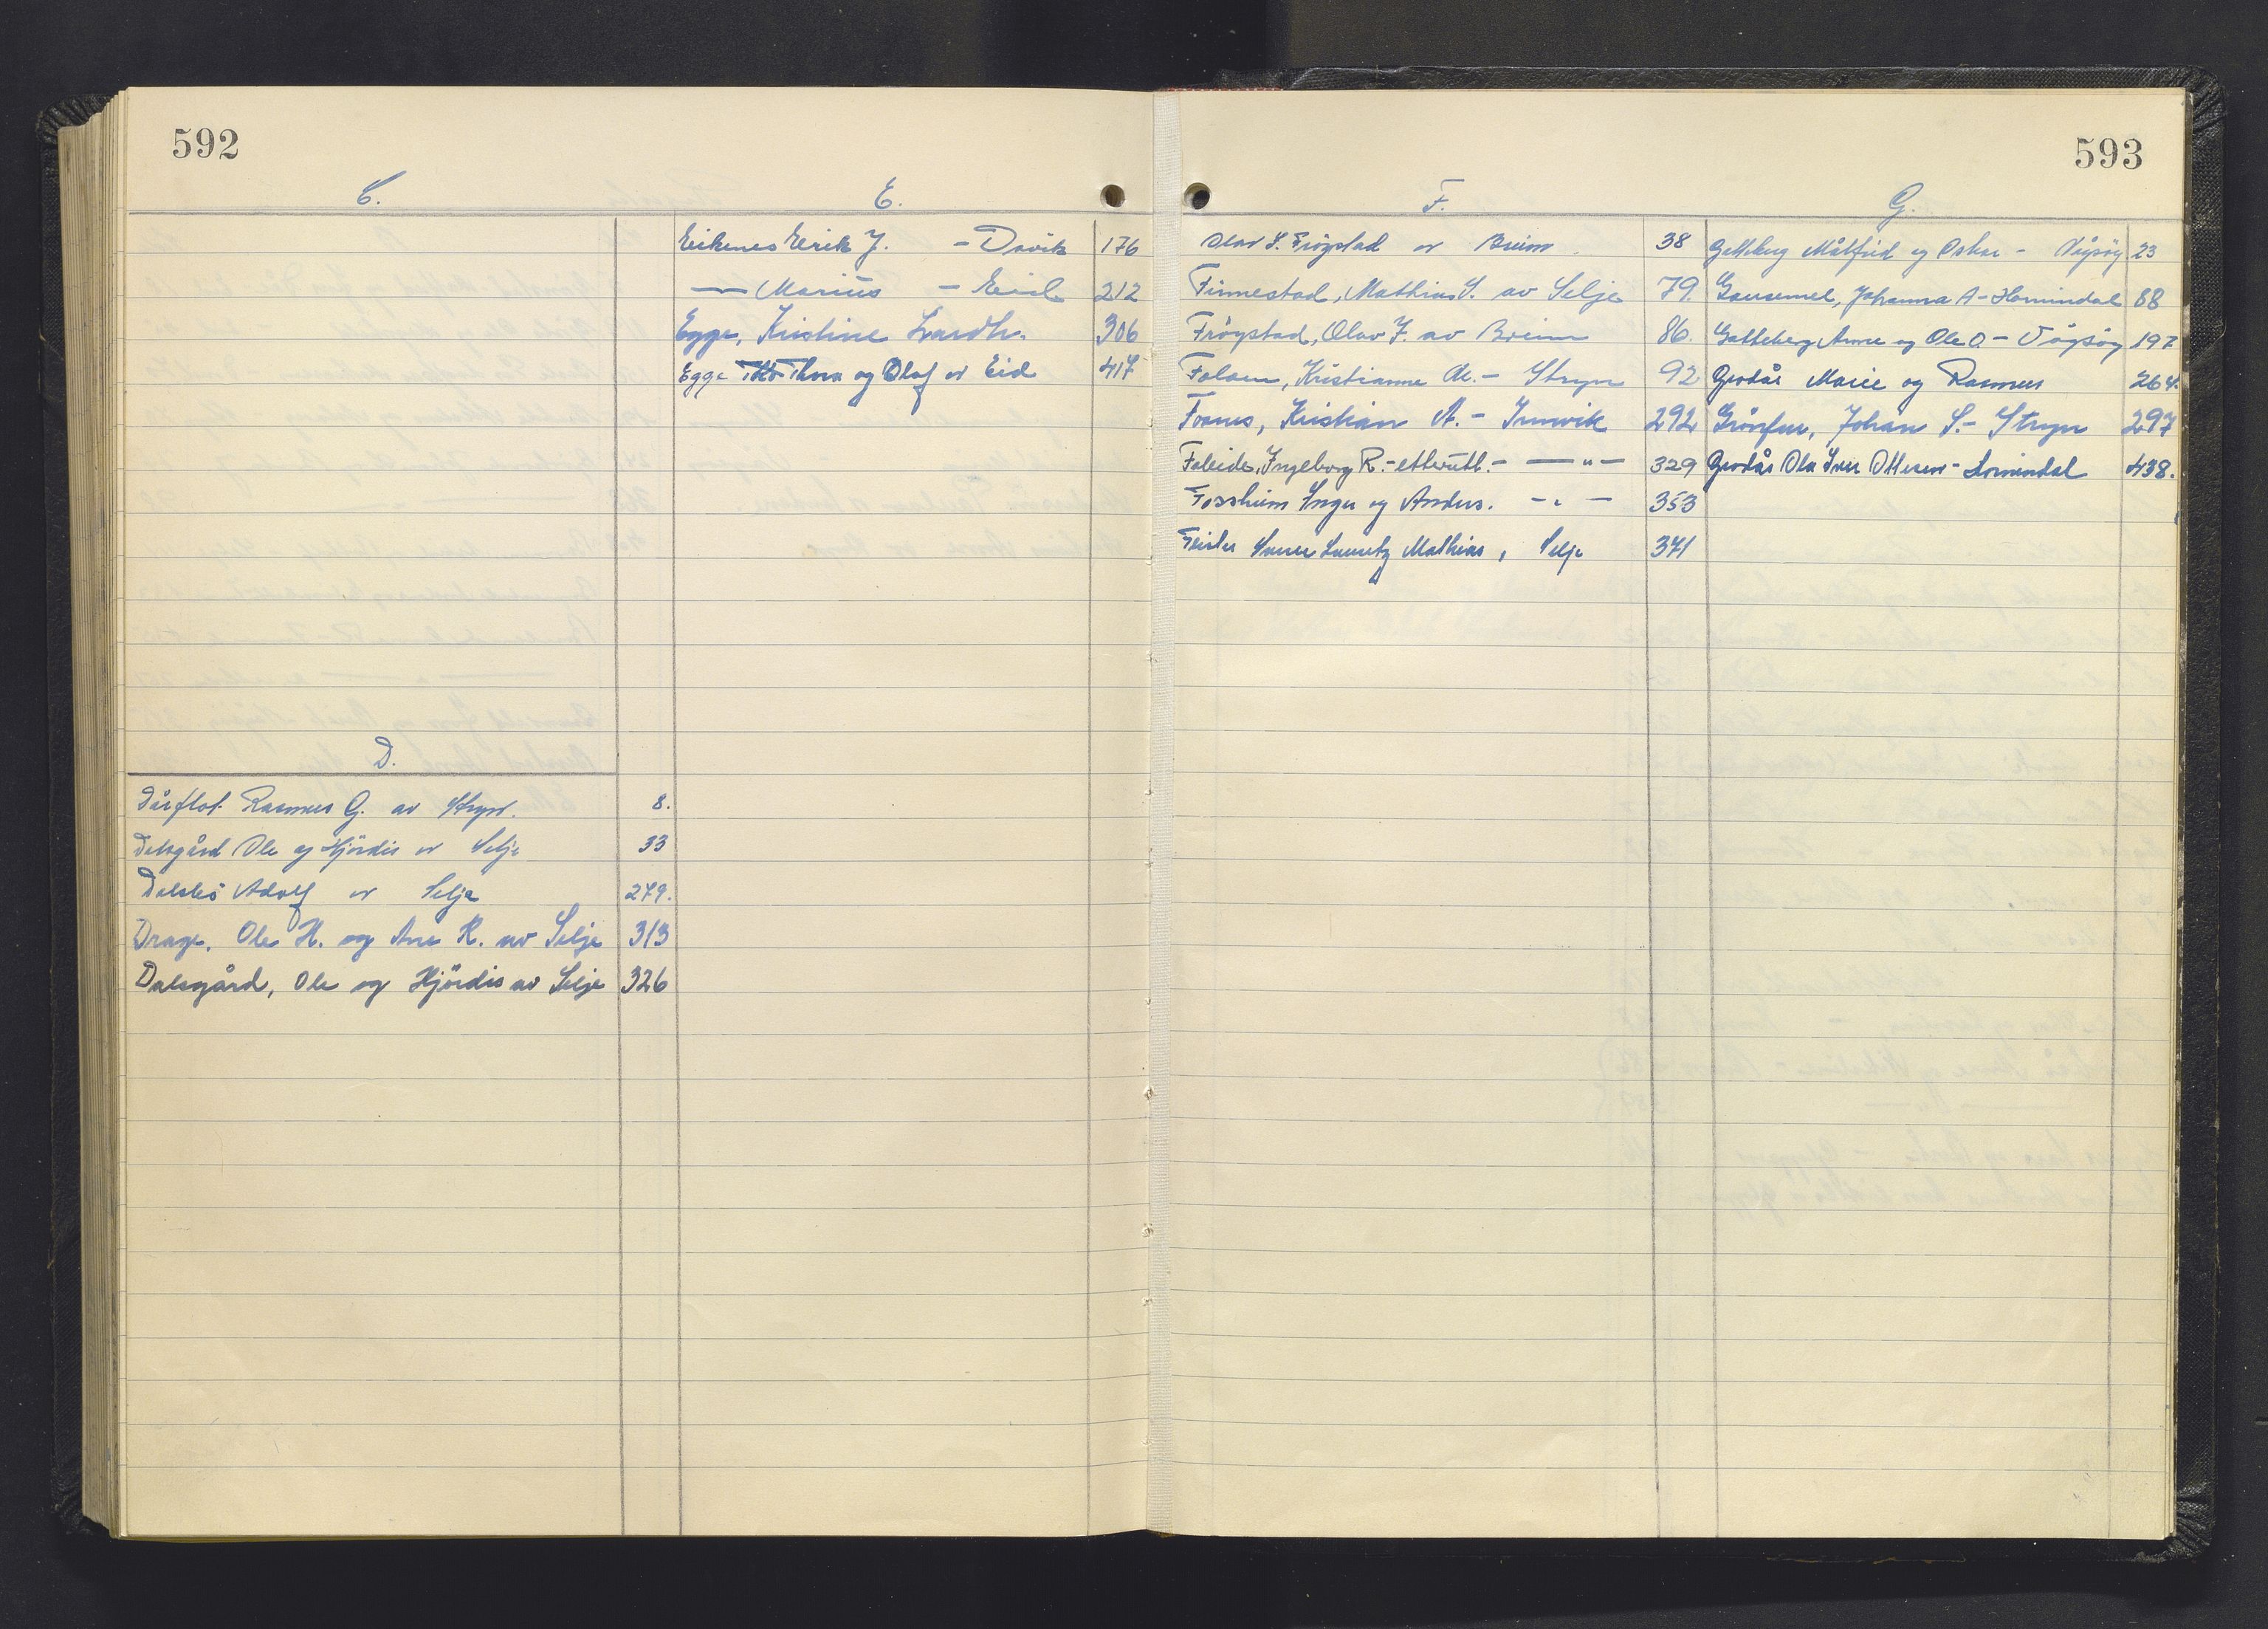 592
C.
D.
Dårflot Rasmus G. av Stryn. 8.
Dalsgård Ole og Hjördis av Selje 33
Dalsbö Adolf av Selje 279.
Drage, Ole H. og Ane R. av Selje 313
Dalsgård, Ole og Hjördis av Selje 326
E.
Eikenes Eirik J. - Davik 176
— Marius - Eid 212
Egge, Kristine Lardh. 306
Egge Thora og Olaf av Eid 417
593
F.
Olav J. Fröystad av Breim 38
Finnestad, Mathias S. av Selje 79.
Fröystad, Olav J. av Breim 86.
Folven, Kristianne M. - Stryn 92
Foanes, Kristian A. - Innvik 292
Faleide, Ingeborg R. - etterutl. - — " — 329
Fossheim Inga og Anders. - " - 353
Lauritz Mathias, Selje 371
G.
Gotteberg Målfrid og Oskar - Vågsöy 23
Gausemel, Johanna A - Hornindal 88
Gotteberg Anne og Ole O - Vågsöy 197
Grodås Marie og Rasmus 264.
Johan S. - Stryn 297
Grodås Ola Iver Ottesen - Hornindal 438.